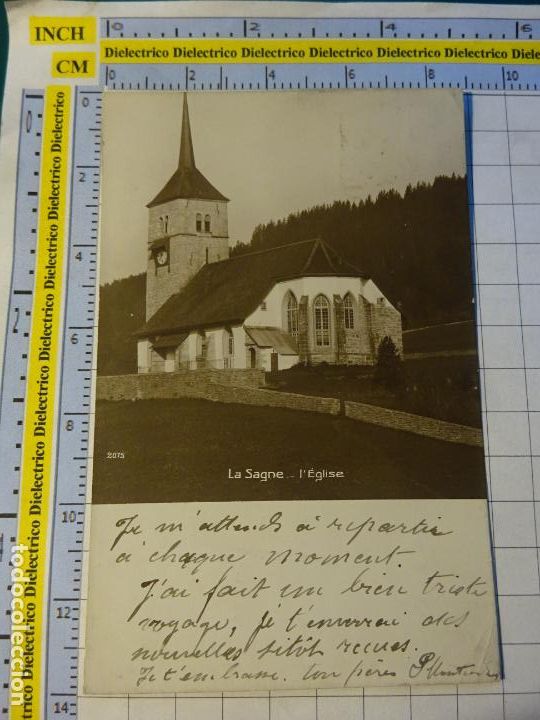 INCH
0 2 4 6
Dielectrico Dielectrico Dielectrico Dielectrico Dielectrico Diele
CM
0 2 4 6 8 10
0
2
4
6
8
10
12
14
Dielectrico Dielectrico Dielectrico Dielectrico Dielectrico Dielectrico Dielectrico
2075
La Sagne - l'Église
Je m'attends à repartir
à chaque moment.
J'ai fait un bien triste
voyage, je t'enverrai des
nouvelles sitôt reçues.
Je t'embrasse. ton père
todocoleccion.net